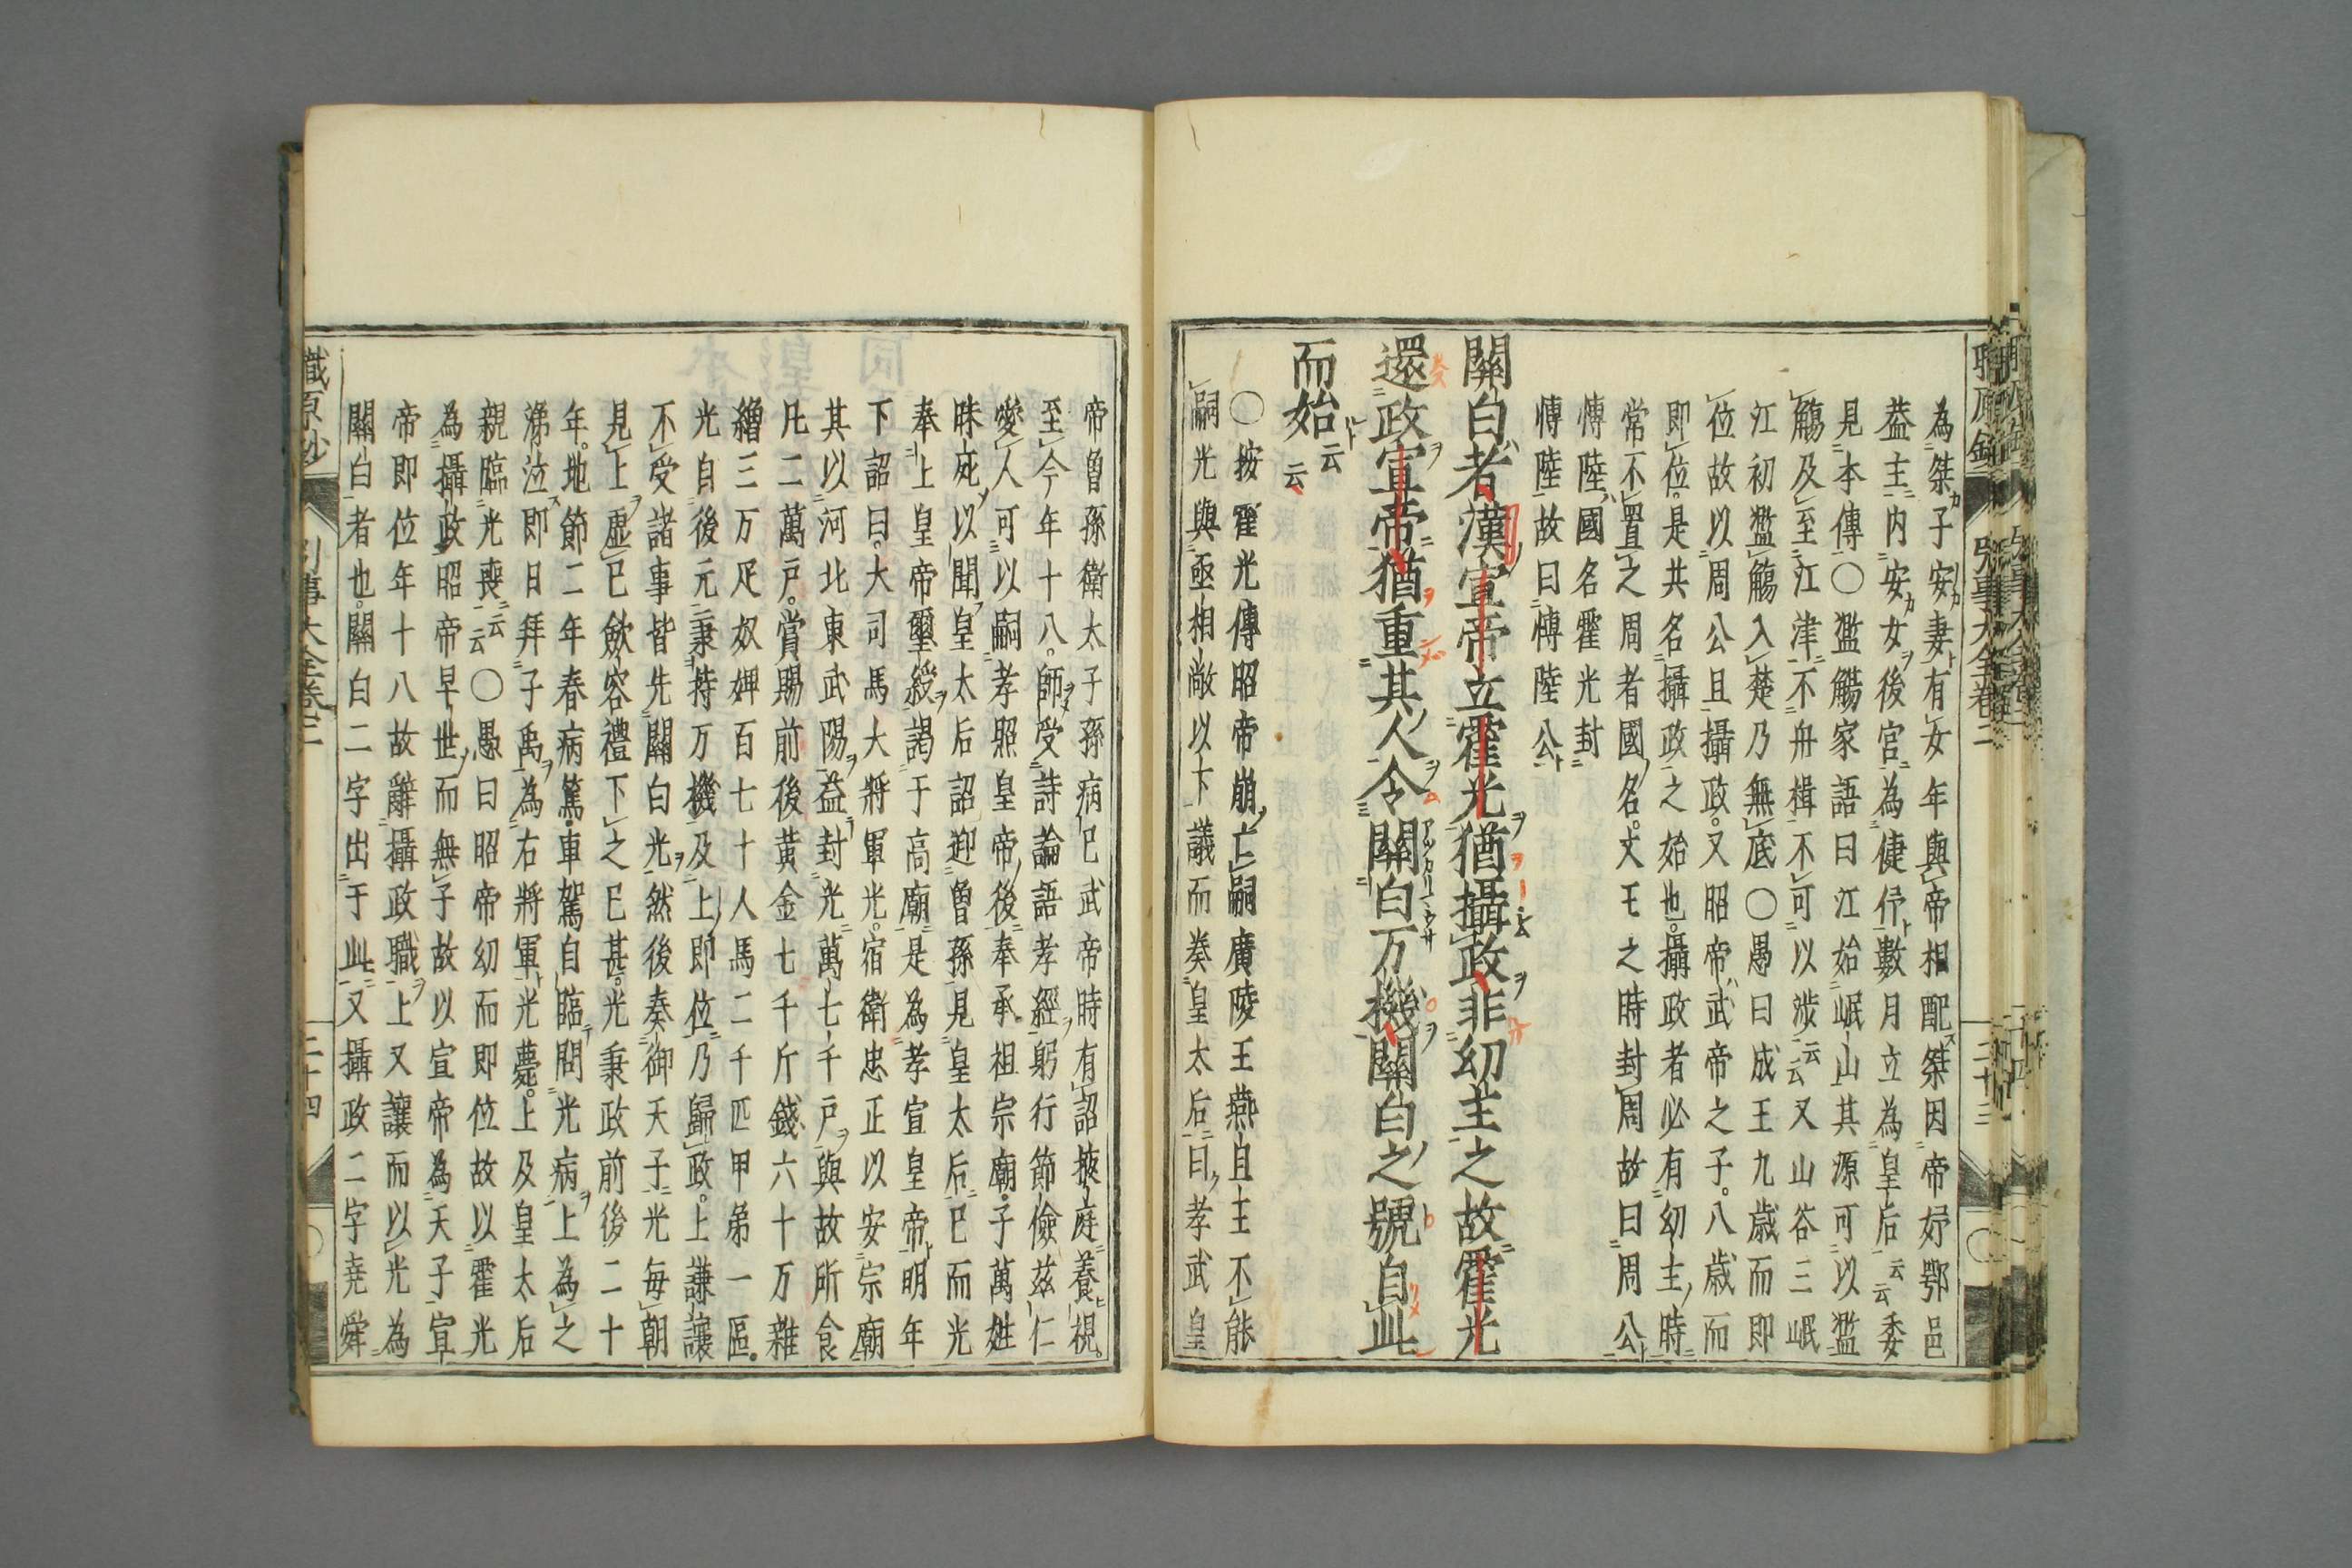 為桀子安妻有女年與帝相配桀因帝妤鄂邑
葢主内安女後宮為倢伃數月立為皇后云云委
見本傳○濫觴家語曰江始岷山其源可以濫
觴及至江津不舟楫不可以渉云云又山谷三岷
江初濫觴入楚乃無底○愚曰成王九歳而即
位故以周公且攝政又昭帝武帝之子八歳而
即位是其名攝政之始也攝政者必有幼主時
常不置之周者國名文王之時封周故曰周公
愽陸國名霍光封
愽陸故曰愽陸公
關白者漢宣帝立霍光猶攝政非幼主之故霍光
還政宣帝猶重其人令關白万機關白之號自此
而始云云
○按霍光傳昭帝崩亡嗣廣陵王燕且王不能
嗣光與亟相敞以下議而奏皇太后曰孝武皇
帝曽孫衛太子孫病已武帝時有詔掖庭養視
至今年十八師受詩論語孝經躬行節儉茲仁
愛人可以嗣孝照皇帝後奉承祖宗廟子萬姓
昧死以聞皇太后詔迎曽孫見皇太后已而光
奉上皇帝璽綬謁于高廟是為孝宣皇帝明年
下詔曰大司馬大將軍光宿衛忠正以安宗廟
其以河北東武陽益封光萬七千戸與故所食
凡二萬戸賞賜前後黄金七千斤錢六十万雜
繒三万疋奴婢百七十人馬二千匹甲弟一區
光自後元秉持万機及上即位乃歸政上謙讓
不受諸事皆先關白光然後奏御天子光毎朝
見上虚已斂容禮下之已甚光秉政前後二十
年地節二年春病篤車駕自臨問光病上為之
涕泣即日拜子禹為右將軍光薨上及皇太后
親臨光喪云云○愚曰昭帝幼而即位故以霍光
為攝政昭帝早世而無子故以宣帝為天子宣
帝即位年十八故辭攝政職上又讓而以光為
關白者也關白二字出于此又攝政二字尭舜
職原鈔 引事大全巻二 二十四